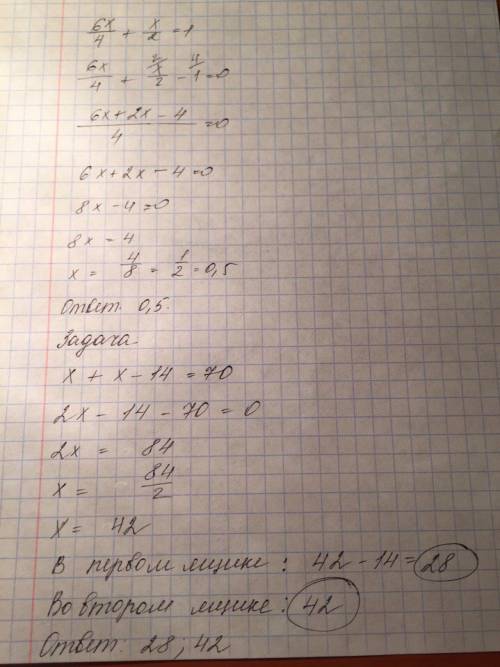 6x/4 + x/2 = 1
6x/4 + x/2 ² - 1/1 ⁴ = 0
6x + 2x - 4 / 4 = 0
6x + 2x - 4 = 0
8x - 4 = 0
8x = 4
x = 4/8 = 1/2 = 0,5
Ответ. 0,5.
Задача.
x + x - 14 = 70
2x - 14 - 70 = 0
2x = 84
x = 84/2
x = 42
В первом ящике: 42 - 14 = 28
Во втором ящике: 42
Ответ: 28; 42